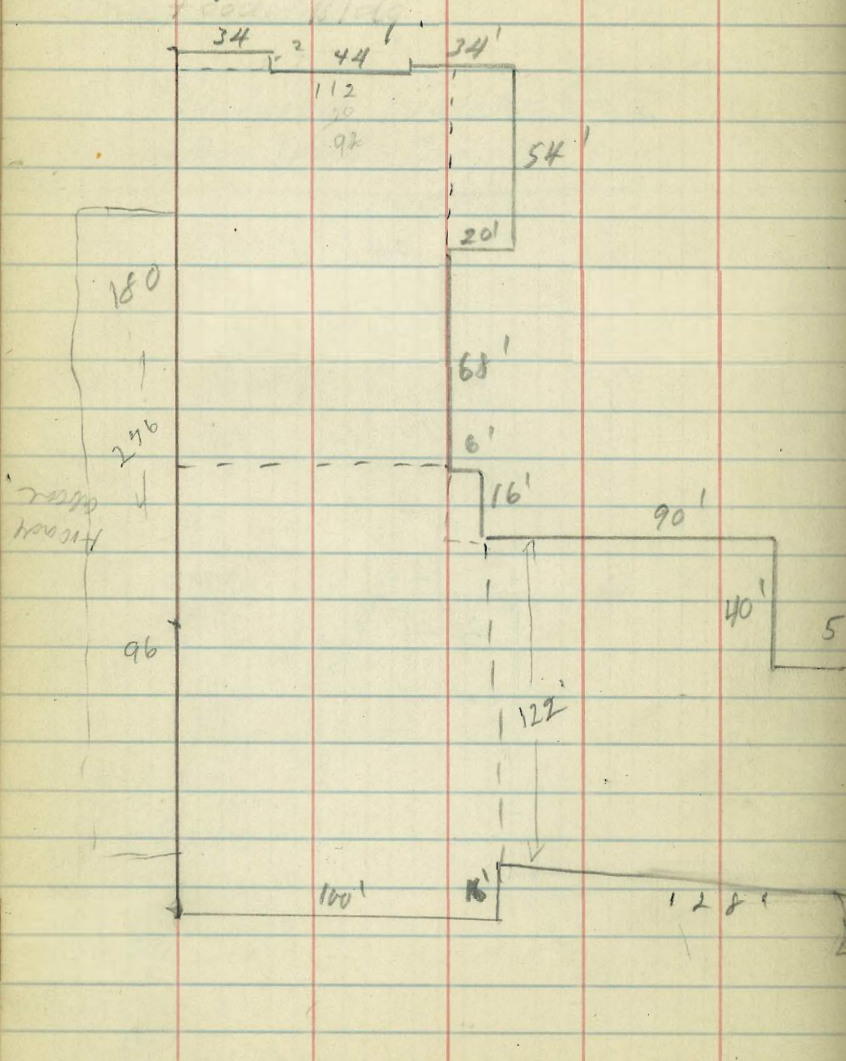 34
2
44'
34'
112
20
92
54'
20'
180
68'
276
6'
16'
90'
40'
5
96
122'
100'
16'
128'